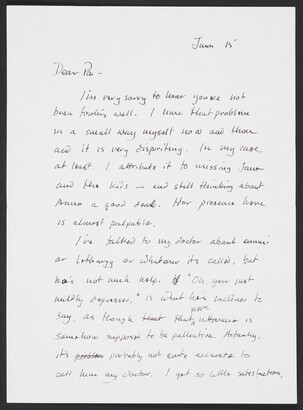 June 15
Dear Pa -
I'm very sorry to hear you're not
been feeling well. I have that problem
in a small way myself now and then
and it is very dispiriting. In my case,
at least. I attribute it to missing Jane
and the kids — and still thinking about
Anna a good deal. Her presence here
is almost palpable.
I've talked to my doctor about ennui
or lethargy or whatever it's called, but
he's not much help. "Oh, you just
mildly depressed," is what he's inclined to
say, as though that
somehow supposed to be palliative. Actually,
it's probably not quite accurate to
call him my doctor. I get so little satisfaction,